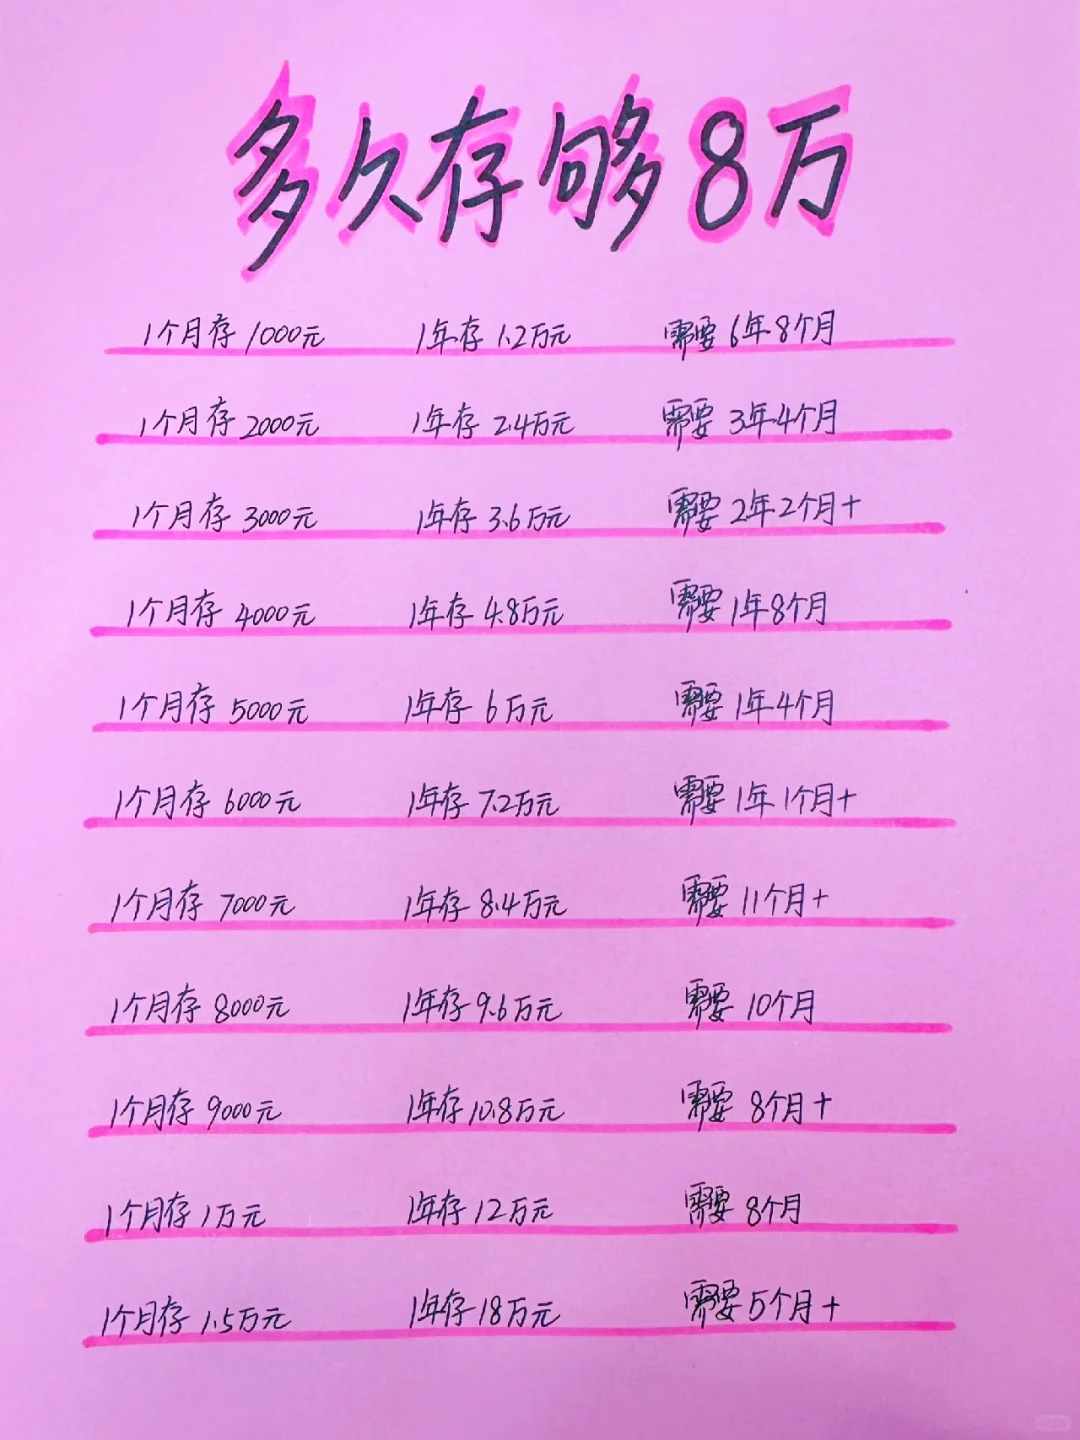 多久存够8万
1个月存1000元 1年存1.2万元 需要6年8个月
1个月存2000元 1年存2.4万元 需要3年4个月
1个月存3000元 1年存3.6万元 需要2年2个月+
1个月存4000元 1年存4.8万元 需要1年8个月
1个月存5000元 1年存6万元 需要1年4个月
1个月存6000元 1年存7.2万元 需要1年1个月+
1个月存7000元 1年存8.4万元 需要11个月+
1个月存8000元 1年存9.6万元 需要10个月
1个月存9000元 1年存10.8万元 需要8个月+
1个月存1万元 1年存12万元 需要8个月
1个月存1.5万元 1年存18万元 需要5个月+